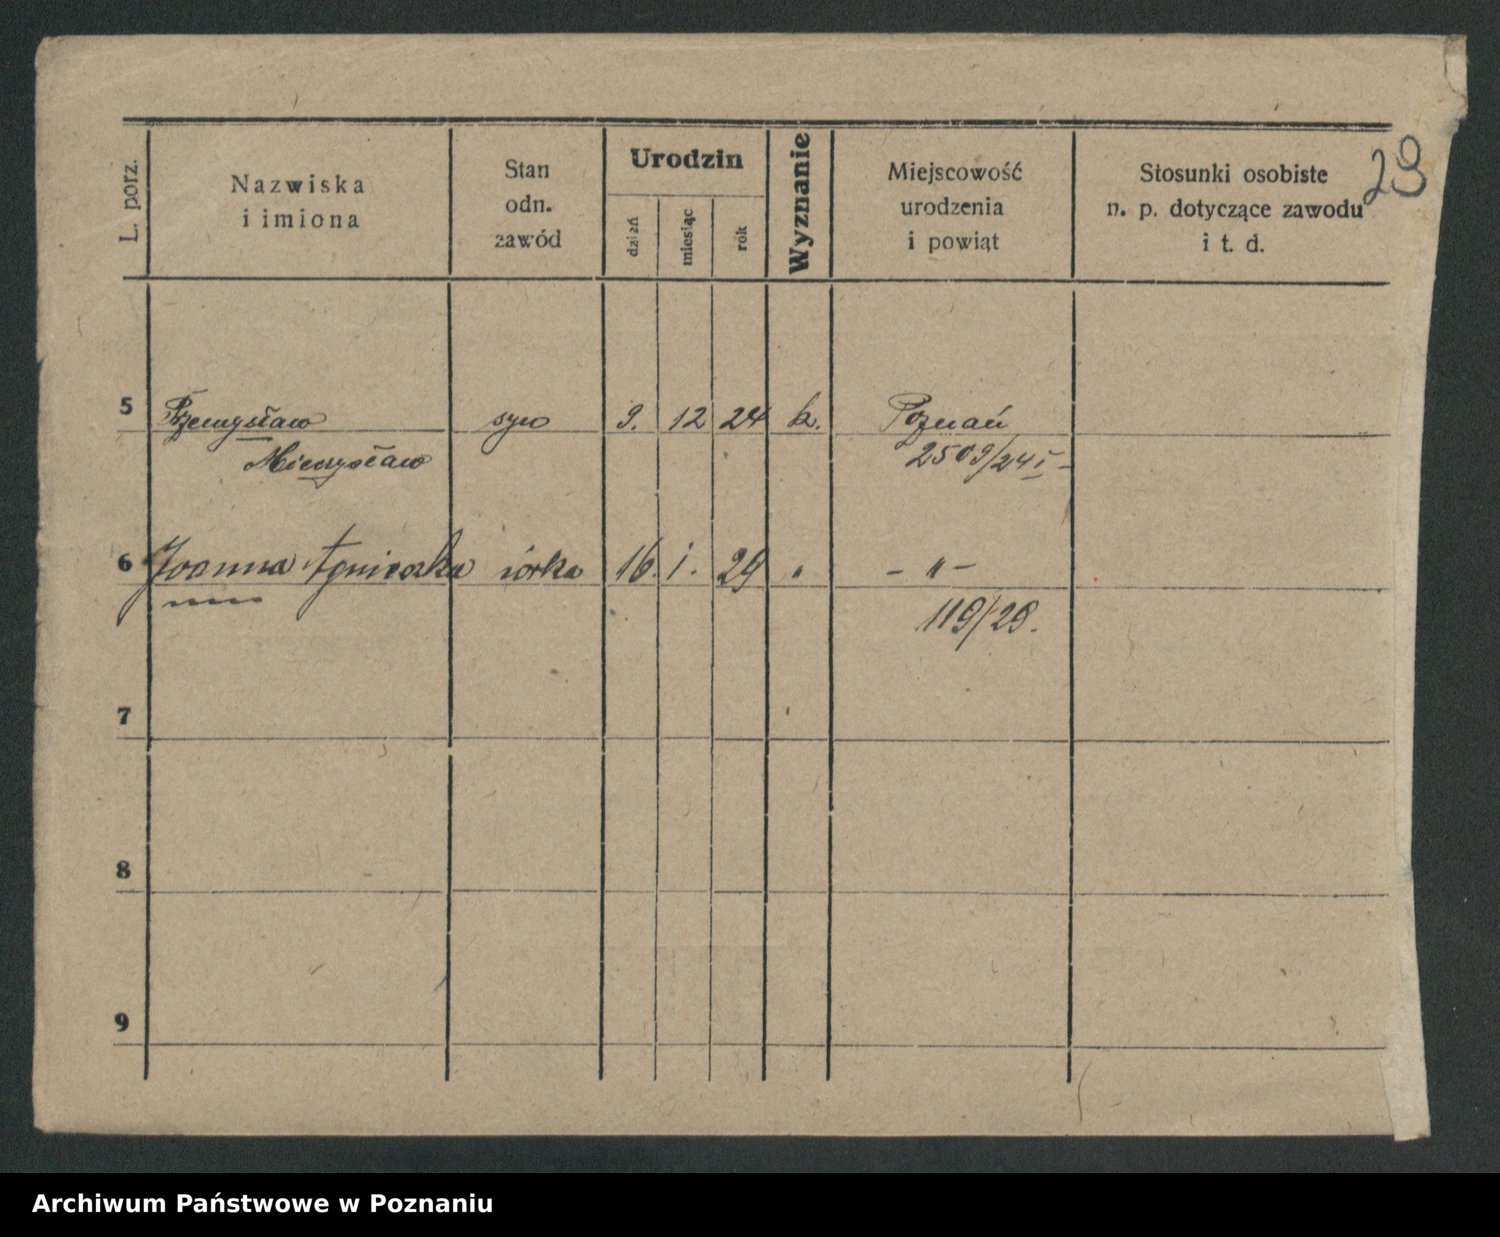 29
L. porz.
Nazwiska
i imiona
Stan
odn.
zawód
Urodzin
dzień
miesiąc
rok
Wyznanie
Miejscowość
urodzenia
i powiąt
Stosunki osobiste
n. p. dotyczące zawodu
i t. d.
5 Przemysław syn 9. 12 24 k. Poznań
Mieczysław 2509/24 I
6 Joanna Agnieszka córka 16. 1. 29 " – " –
119/29.
7
8
9
Archiwum Państwowe w Poznaniu